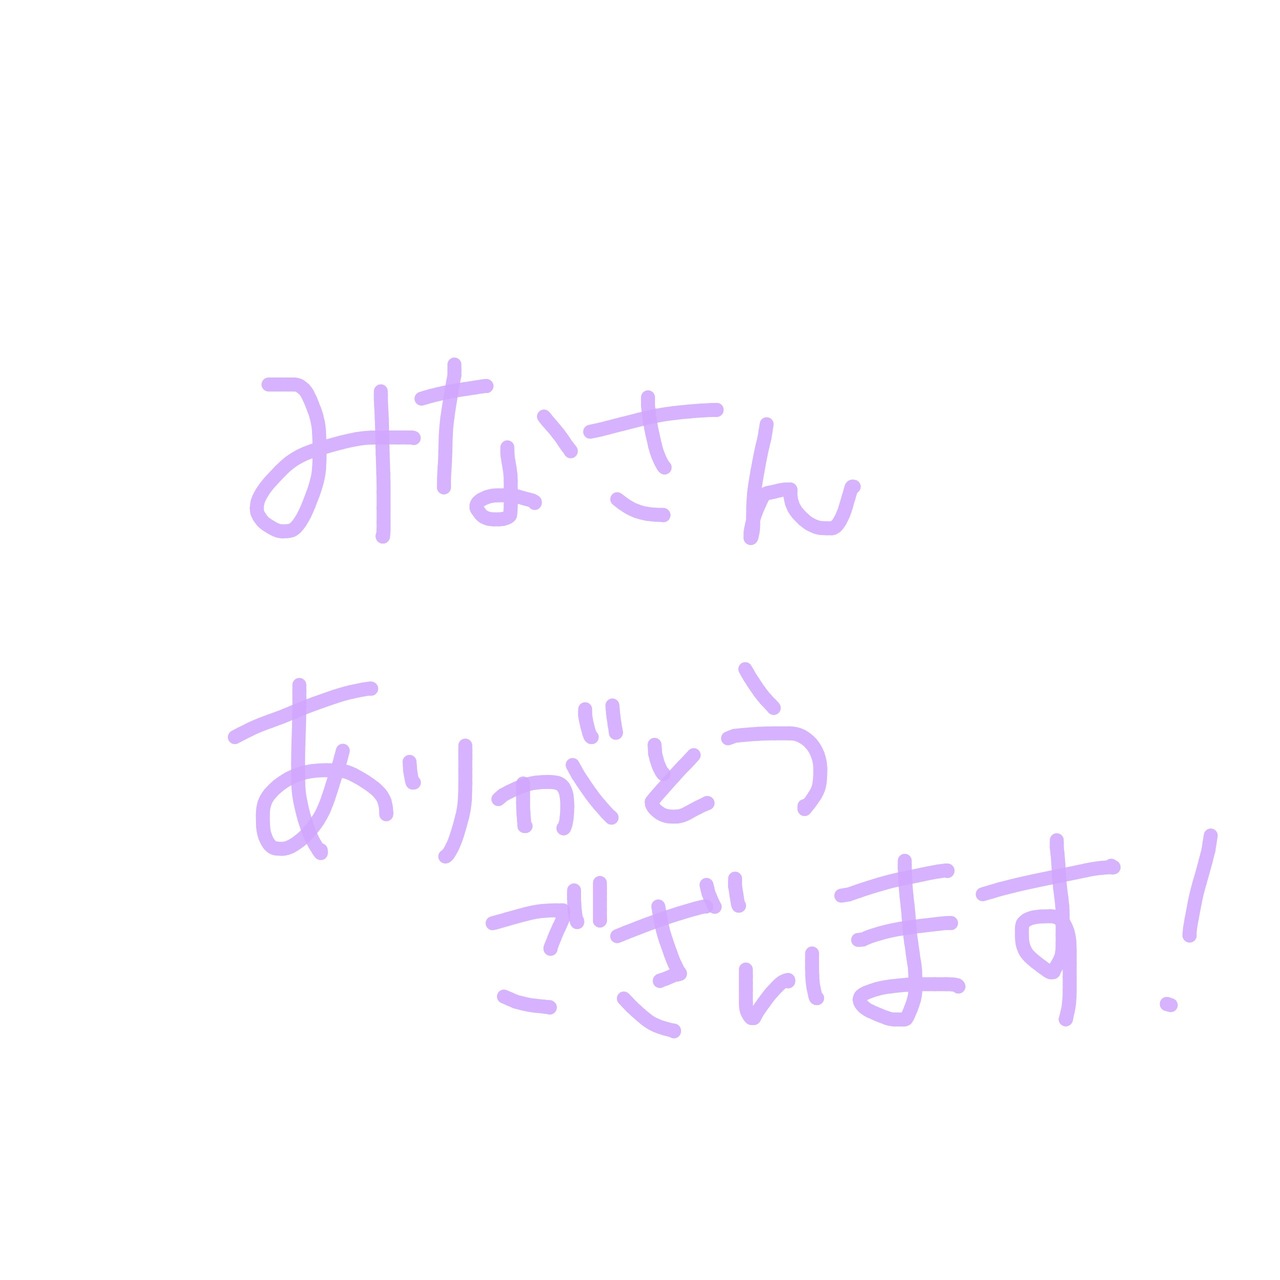 みなさん
ありがとう
ございます!